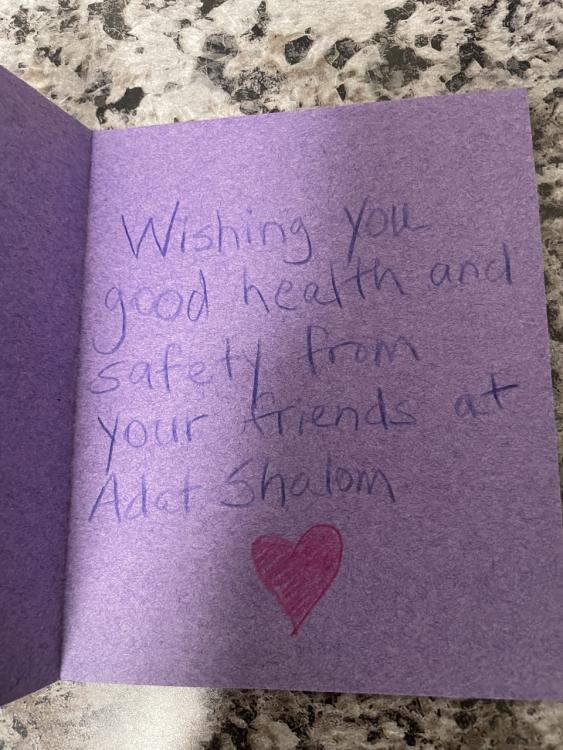 Wishing you
good health and
safety from
your friends at
Adat Shalom